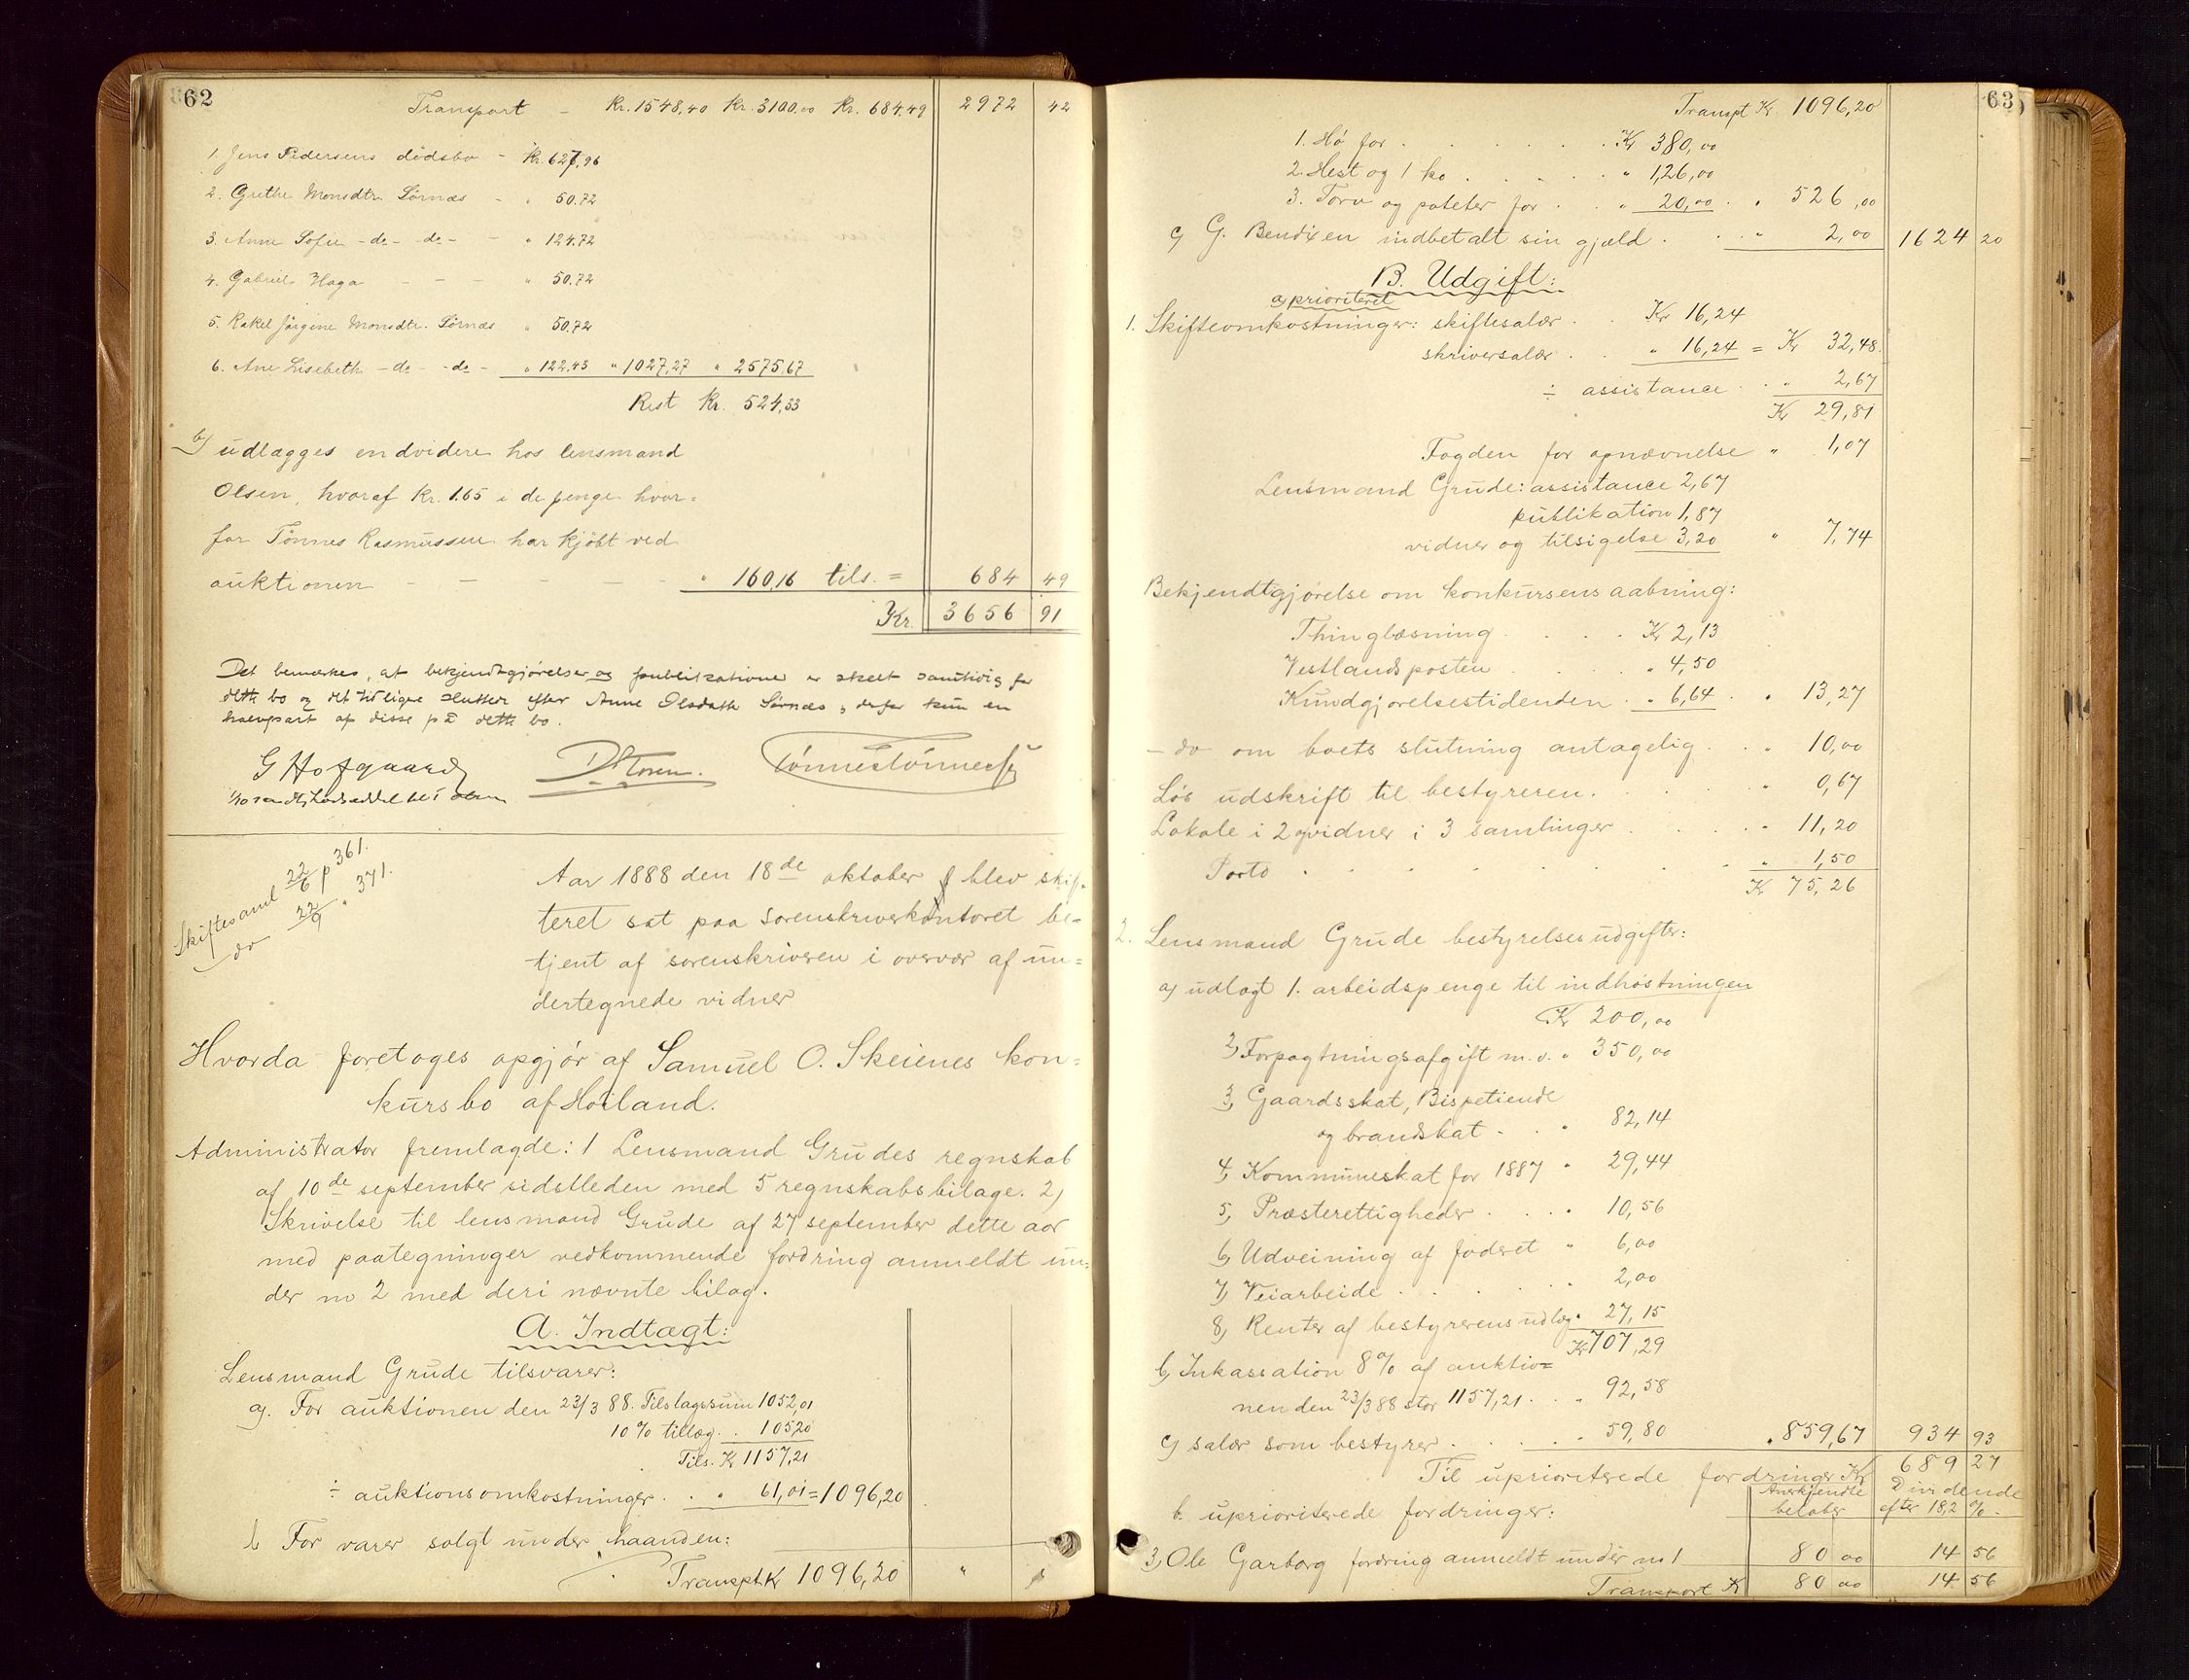 62
Transport - Kr. 1548,40 Kr. 3100,00 Kr. 684,49 2972 42
1. Jens Pedersens dödsbo - Kr. 627,96
2. Grethe Monsdtr. Sørnæs - " 50.72
3. Anne Sofie - do - - do - - " 124.72
4. Gabriel Haga - - - " 50.72
5. Rakel Jörgine Monsdtr. Sörnæs " 50.72
6. Ane Lisebeth - do - - do - " 122.43 " 1027,27 " 2575.67
Rest Kr. 524,33
b) udlægges en dvidere hos lensmand
Olsen, hvoraf Kr. 1.65 i de penge hvor=
for Tönnes Rasmussen har kjöbt ved
auktionen - - - - - " 160,16 tils. = 684 49
Kr. 3656 91
Det bemærkes, at bekjendtgjørelser og publikationer er skeet samtidig for
dette bo og det tidligere sluttede efter Anne Olsdatter Sørnæs, derfor kun en
halvpart af disse på dette bo.
G Hofgaard Tønnes Tønnesen
Skiftesaml 22/6 p 361.
do 22/9 " 371.
Aar 1888 den 18de oktober blev skif=
teret sat paa sorenskriverkontoret be=
tjent af sorenskriveren i overvær af un=
dertegnede vidner
Hvorda foretoges opgjör af Samuel O. Skeienes kon=
kursbo af Höiland.
Administrator fremlagde: 1 Lensmand Grudes regnskab
af 10de september sidstleden med 5 regnskabsbilage. 2)
Skrivelse til lensmand Grude af 27 september dette aar
med paategninger vedkommende fordring anmeldt un=
der no 2 med deri nævnte bilag.
A. Indtægt:
Lensmand Grude tilsvarer:
a). For auktionen den 23/3 88. Tilslagssum 1052,01
10 % tillæg . . 105,20
Tils. Kr 1157,21
÷ auktionsomkostninger . . " 61,01 = 1096,20
b For varer solgt under haanden:
Transpt Kr 1096,20 "
63
Transpt Kr 1096,20
1. Hö for . . . . . . Kr 380,00
2. Hest og 1 ko . . . . . " 126,00
3. Torv og poteter for . . " 20,00 . " 526,00
c) G. Bendixen indbetalt sin gjæld . . . " 2,00 1624 20
B. Udgift:
a) prioriteret
1. Skifteomkostninger: skiftesalær . . Kr 16,24
skriversalær . . " 16,24 = Kr 32,48.
÷ assistance . . " 2,67
Kr 29,81
Fogden for opnævnelse " 1,07
Lensmand Grude: assistance 2,67
publikation 1,87
vidner og tilsigelse 3,20 " 7,74
Bekjendtgjörelse om konkursens aabning:
Thinglæsning . . . . Kr 2,13
Vestlandsposten . . . . " 4,50
Kundgjörelsestidenden . " 6,64 . " 13,27
- do om boets slutning antagelig . . " 10,00
Lös udskrift til bestyreren . . . . . " 0,67
Lokale i 2 og vidner i 3 samlinger . . . . " 11,20
Porto . . . . . . . . " 1,50
Kr 75,26
2. Lensmand Grude bestyrelsesudgifter:
a) udlagt 1. arbeidspenge til indhöstningen
Kr 200,00
2) Forpagtningsafgift m.v. " 350,00
3, Gaardsskat, Bispetiende
og brandskat . . " 82,14
4, Kommuneskat for 1887 " 29,44
5, Præsterettigheder . . . . 10,56
6, Udveining af foderet " 6,00
7, Veiarbeide . . . . . 2,00
8, Renter af bestyrerens udlæg " 27,15
Kr 707,29
b, Inkassation 8 % af auktio=
nen den 23/3 88 stor 1157,21 . . " 92,58
c) salær som bestyrer . . . . . " 59,80 " 859,67 934 93
Til uprioriterede fordringer Kr 689 27
b. uprioriterede fordringer: Anerkjendte belöber Dividende efter 18,2 %.
3) Ole Garborg fordring anmeldt under no 1 80 00 14 56
Transport Kr 80 00 14 56